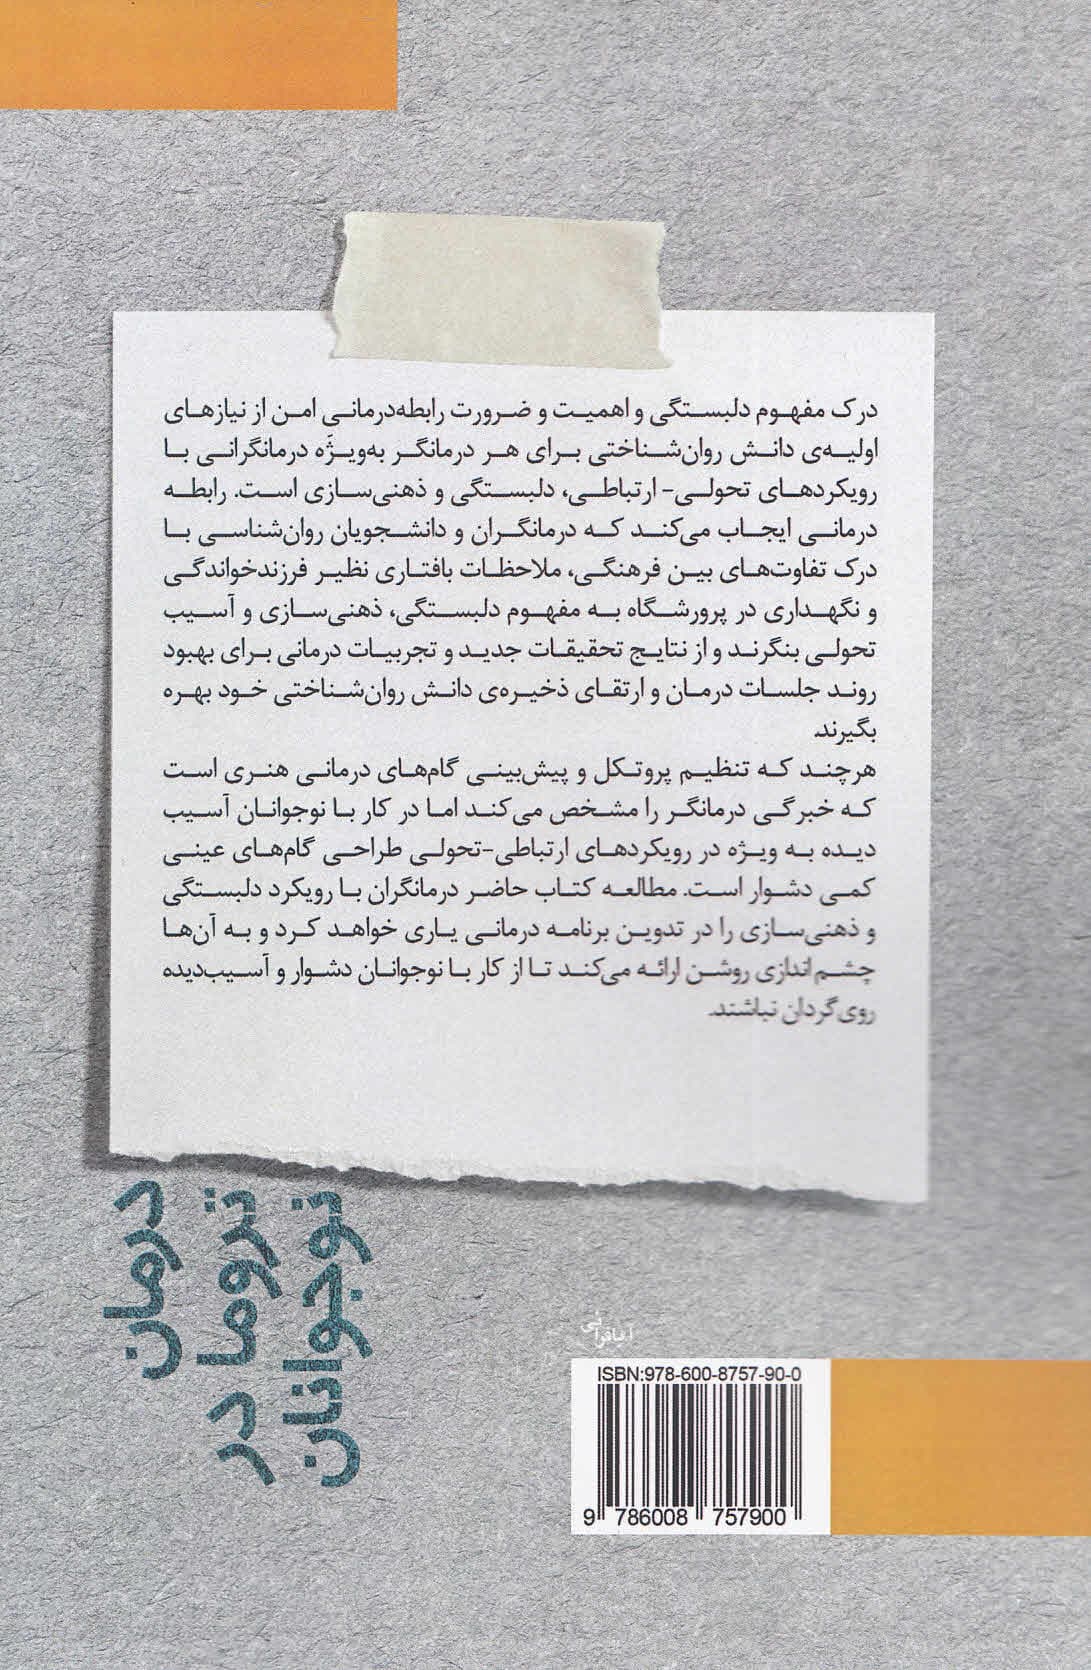 درک مفهوم دلبستگی و اهمیت و ضرورت رابطه‌درمانی امن از نیازهای
اولیه‌ی دانش روان‌شناختی برای هر درمانگر به‌ویژَه درمانگرانی با
رویکردهای تحولی- ارتباطی، دلبستگی و ذهنی‌سازی است. رابطه
درمانی ایجاب می‌کند که درمانگران و دانشجویان روان‌شناسی با
درک تفاوت‌های بین فرهنگی، ملاحظات بافتاری نظیر فرزندخواندگی
و نگهداری در پرورشگاه به مفهوم دلبستگی، ذهنی‌سازی و آسیب
تحولی بنگرند و از نتایج تحقیقات جدید و تجربیات درمانی برای بهبود
روند جلسات درمان و ارتقای ذخیره‌ی دانش روان‌شناختی خود بهره
بگیرند.
هرچند که تنظیم پروتکل و پیش‌بینی گام‌های درمانی هنری است
که خبرگی درمانگر را مشخص می‌کند اما در کار با نوجوانان آسیب
دیده به ویژه در رویکردهای ارتباطی-تحولی طراحی گام‌های عینی
کمی دشوار است. مطالعه کتاب حاضر درمانگران با رویکرد دلبستگی
و ذهنی‌سازی را در تدوین برنامه درمانی یاری خواهد کرد و به آن‌ها
چشم‌اندازی روشن ارائه می‌کند تا از کار با نوجوانان دشوار و آسیب‌دیده
روی‌گردان نباشند.
درمان
تروما در
نوجوانان
ISBN:978-600-8757-90-0
9 786008 757900